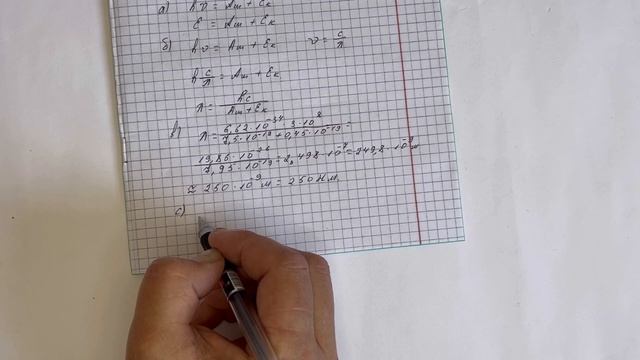 а) hν = Aш + Eк
E = Aш + Eк
б) hν = Aш + Eк    ν = c/λ
h c/λ = Aш + Eк
λ = hc / (Aш + Eк)
в) λ = 6,62·10⁻³⁴·3·10⁸ / (7,5·10⁻¹⁹ + 0,45·10⁻¹⁹) =
19,86·10⁻²⁶ / 7,95·10⁻¹⁹ = 2,498·10⁻⁷ = 249,8·10⁻⁹ м
≈ 250·10⁻⁹ м = 250 нм.
с)